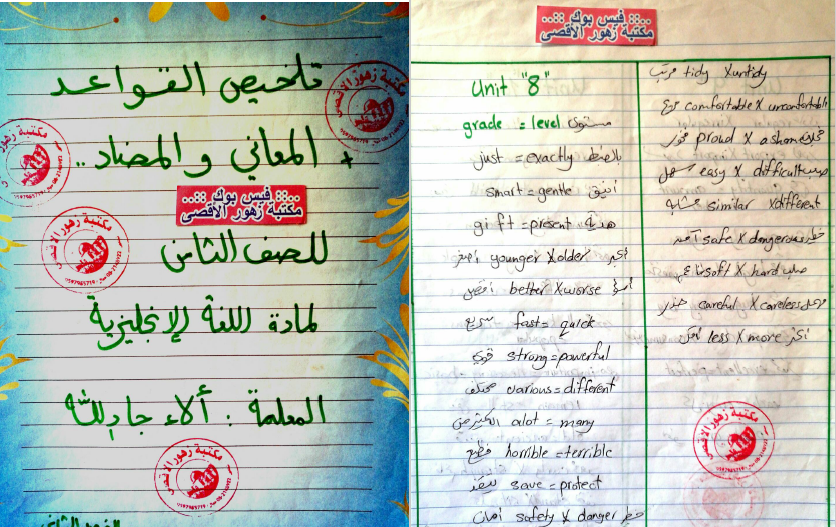 تلخيص القواعد
+ المعاني و المضاد ..
..:: فيس بوك ::..
مكتبة زهور الأقصى
للصف الثامن
لمادة اللغة الإنجليزية
المعلمة : ألاء جادلله
مكتبة زهور الأقصى
..:: فيس بوك ::..
مكتبة زهور الأقصى
Unit "8"
grade = level مستوى
just = exactly بالضبط
smart = gentle أنيق
gift = present هدية
أصغر younger X older أكبر
أفضل better X worse أسوأ
سريع fast = quick
قوي strong = powerful
مختلف various = different
الكثير من alot = many
فظيع horrible = terrible
ينقذ save = protect
أمان safety X danger خطر
مرتب tidy X untidy
مريح comfortable X uncomfortable
فخور proud X asham
سهل easy X difficult صعب
مشابه similar X different
آمن safe X dangerous خطر
ناعم soft X hard صلب
حذر careful X careless
أقل less X more أكثر